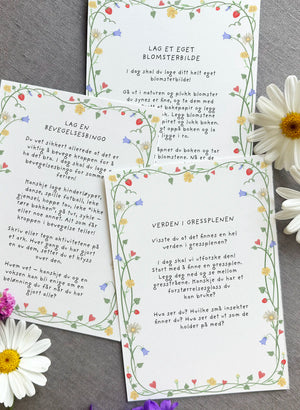 LAG ET EGET
BLOMSTERBILDE
I dag skal du lage ditt helt eget
blomsterbilde!
Gå ut i naturen og plukk blomster
du synes er fine, og ta dem med
bakepapir og legg
Legg blomstene
og lukk boken
boken og
LAG EN
BEVEGELSESBINGO
Du vet sikkert allerede at det er
viktig å bevege kroppen for å
ha det bra. I dag skal du lage
bevegelsesbingo for sommer
ferien!
Kanskje lage hinderløyper,
danse, spille fotball, leke
gjemsel, hoppe tau, leke "ikke
røre bakken", gå tur, sykle
eller noe annet. Alt som får
kroppen i bevegelse teller!
Skriv eller tegn aktivitetene på
et ark. Hver gang du har gjort
en av dem, setter du et kryss
over den.
Hvem vet – kanskje du og en
voksen kan bli enige om en
belønning du får når du har
gjort alle?
VERDEN I GRESSPLENEN
Visste du at det finnes en hel
verden i gressplenen?
I dag skal vi utforske den!
Start med å finne en gressplen.
Legg deg ned og se mellom
gresstråene. Kanskje du har et
forstørrelsesglass du
kan bruke?
Hva ser du? Hvilke små insekter
finner du? Hva ser det ut som de
holder på med?